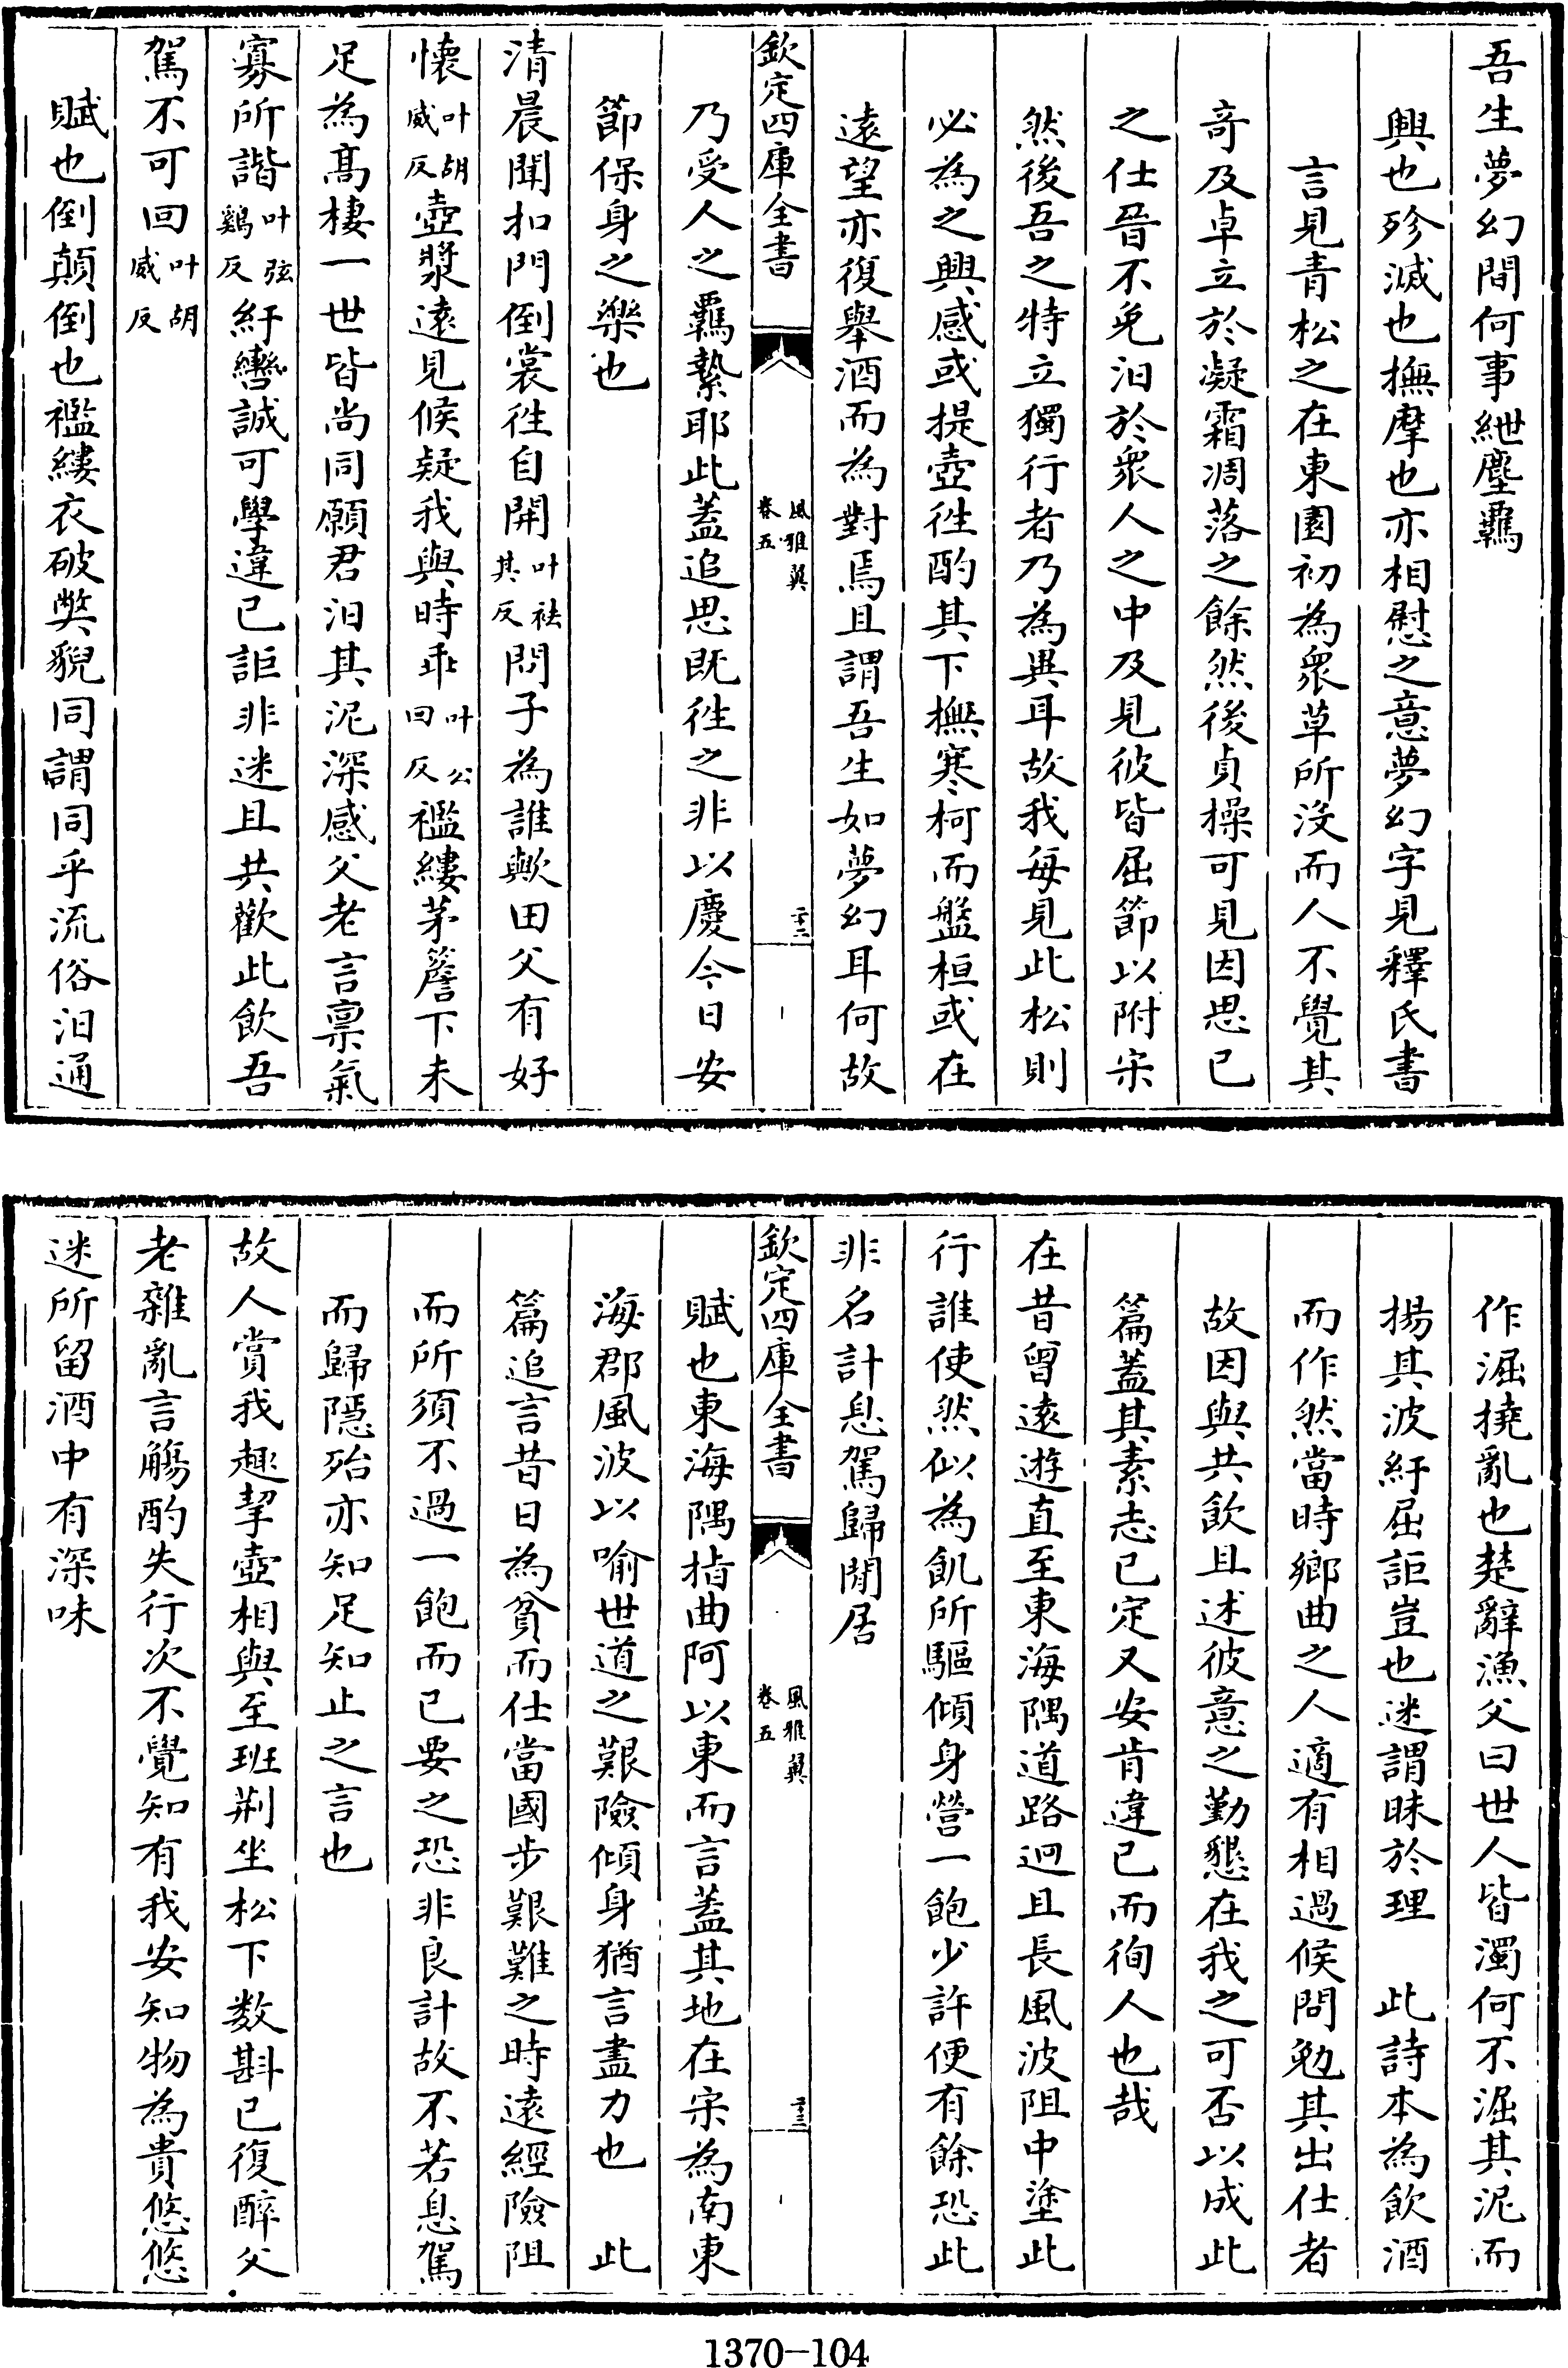 吾生夢幻間何事紲塵羈
興也殄滅也撫摩也亦相慰之意夢幻字見釋氏書
言見青松之在東園初為衆草所沒而人不覺其
奇及卓立於凝霜凋落之餘然後貞操可見因思已
之仕晉不免汩於衆人之中及見彼皆屈節以附宋
然後吾之特立獨行者乃為異耳故我每見此松則
必為之興感或提壺徃酌其下撫寒柯而盤桓或在
遠望亦復舉酒而為對焉且謂吾生如夢幻耳何故
欽定四庫全書
風雅翼
卷五
二十二
乃受人之羈縶耶此蓋追思既徃之非以慶今日安
節保身之樂也
清晨聞扣門倒裳徃自開叶袪其反問子為誰歟田父有好
懷叶胡威反壺漿遠見候疑我與時乖叶公回反襤縷茅簷下未
足為髙棲一世皆尚同願君汩其泥深感父老言禀氣
寡所諧叶弦鷄反紆轡誠可學違已詎非迷且共歡此飲吾
駕不可回叶胡威反
賦也倒顛倒也襤縷衣破獘貌同謂同乎流俗汩通
作淈撓亂也楚辭漁父曰世人皆濁何不淈其泥而
揚其波紆屈詎豈也迷謂昧於理 此詩本為飲酒
而作然當時鄉曲之人適有相過候問勉其出仕者
故因與共飲且述彼意之勤懇在我之可否以成此
篇蓋其素志已定又安肯違已而徇人也哉
在昔曾遠遊直至東海隅道路迥且長風波阻中塗此
行誰使然似為飢所驅傾身營一飽少許便有餘恐此
非名計息駕歸閒居
欽定四庫全書
風雅翼
卷五
二十三
賦也東海隅指曲阿以東而言蓋其地在宋為南東
海郡風波以喻世道之艱險傾身猶言盡力也 此
篇追言昔日為貧而仕當國步艱難之時遠經險阻
而所須不過一飽而已要之恐非良計故不若息駕
而歸隱殆亦知足知止之言也
故人賞我趣挈壺相與至班荆坐松下数斟已復醉父
老雜亂言觴酌失行次不覺知有我安知物為貴悠悠
迷所留酒中有深味
1370-104